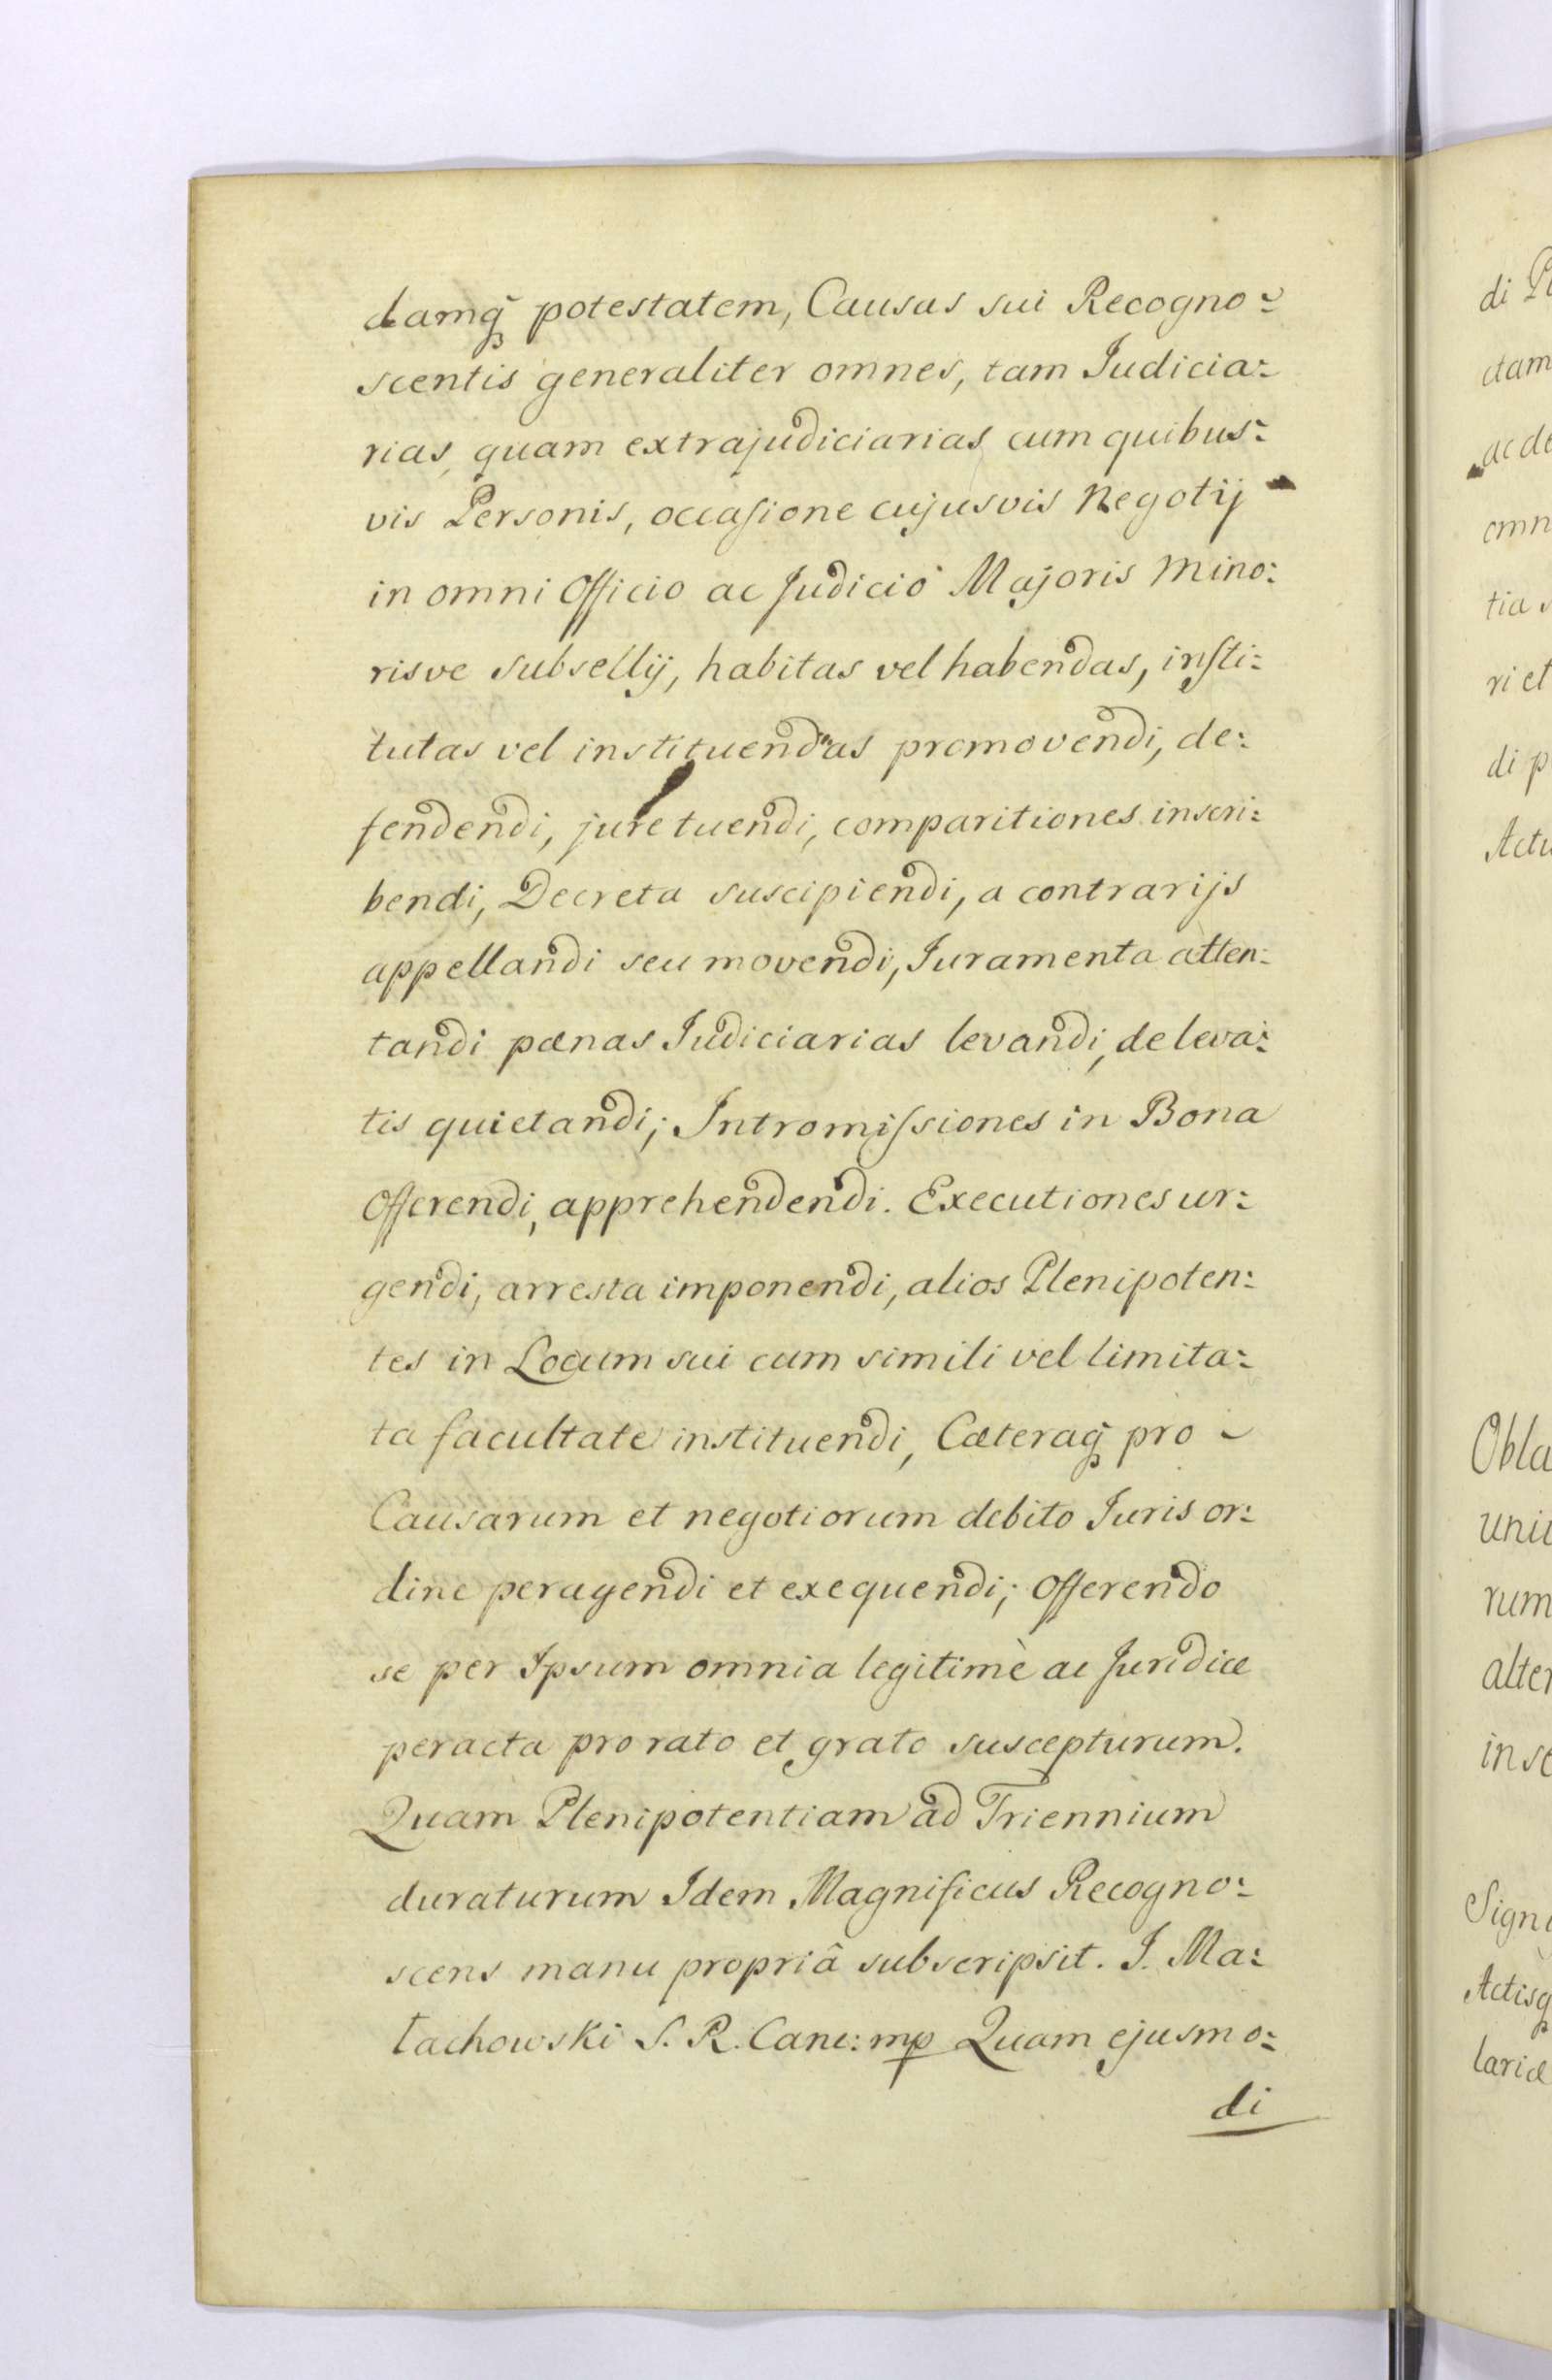 damq̃ potestatem, Causas sui Recogno:
scentis generaliter omnes, tam Judicia:
rias, quam extrajudiciarias cum quibus:
vis Personis, occasione cujusvis Negotij
in omni Officio ac Judicio Majoris Mino:
risve Subsellij, habitas vel habendas, insti:
tutas vel instituendas promovendi, de:
fendendi, jure tuendi, comparitiones inscri:
bendi, Decreta suscipiendi, a contrarijs
appellandi seu movendi, Juramenta atten:
tandi pænas Judiciarias levandi, de leva:
tis quietandi; Intromissiones in Bona
Offerendi, apprehendendi. Executiones ur:
gendi, arresta imponendi, alios Plenipoten:
tes in Locum sui cum simili vel limita:
ta facultate instituendi, Cæteraq̃ pro
Causarum et negotiorum debito Juris or:
dine peragendi et exequendi; Offerendo
se per Ipsum omnia legitimè ac Juridice
peracta pro rato et grato suscepturum.
Quam Plenipotentiam ad Triennium
duraturum Idem Magnificus Recogno:
scens manu propriâ subscripsit. J. Ma:
łachowski S. R. Canc: mp Quam ejusmo:
di
di
dam
ac de
omn
tia
ri et
di p
Actu
Obla
unic
rum
alter
inse
Sign
Actisq
lariæ